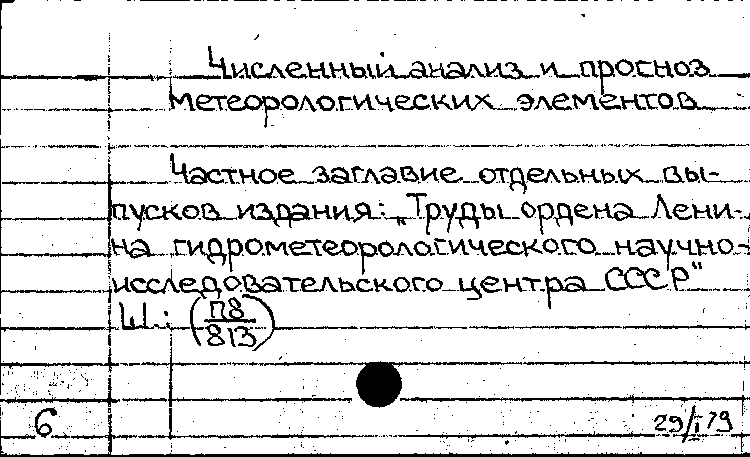 Численный анализ и прогноз
метеорологических элементов
Частное заглавие отдельных вы-
пусков издания: „Труды ордена Лени-
на гидрометеорологического научно-
исследовательского центра СССР"
Ш.: (П8/813)
6
29/I 79